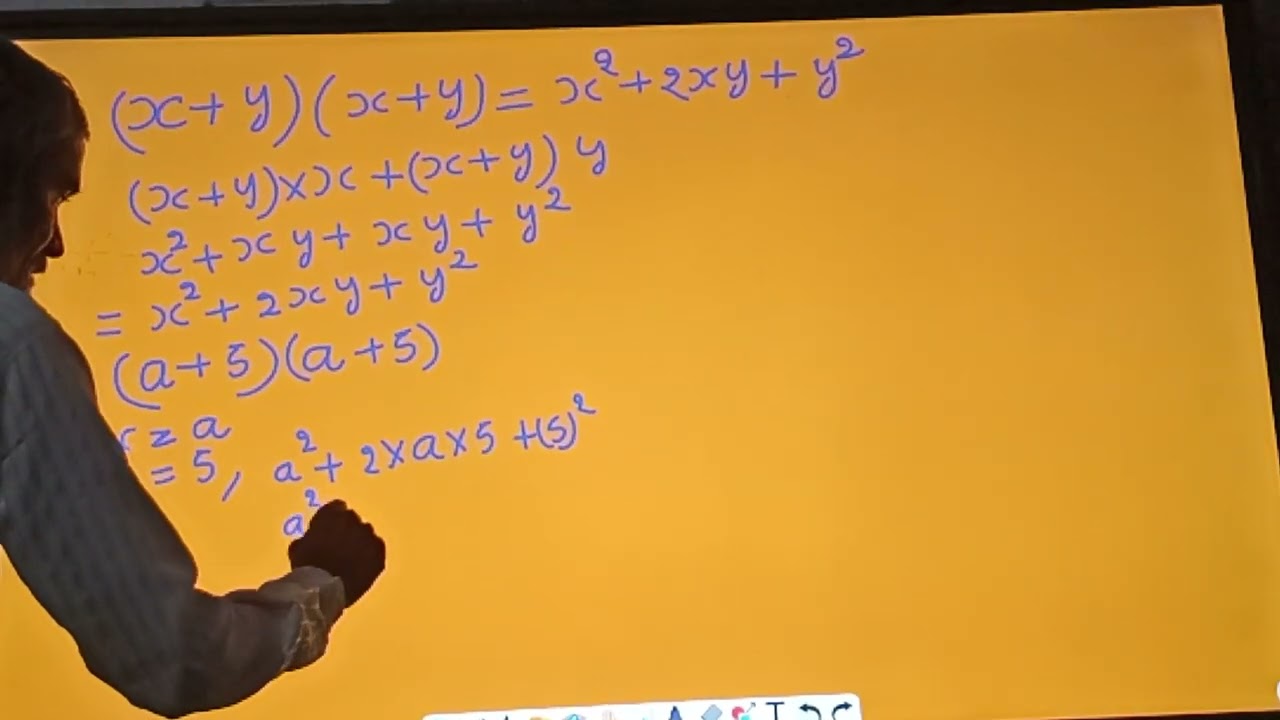 (x+y)(x+y) = x²+2xy+y²
(x+y)×x+(x+y)y
x²+xy+xy+y²
= x²+2xy+y²
(a+5)(a+5)
= a
= 5, a²+2×a×5+(5)²
a²